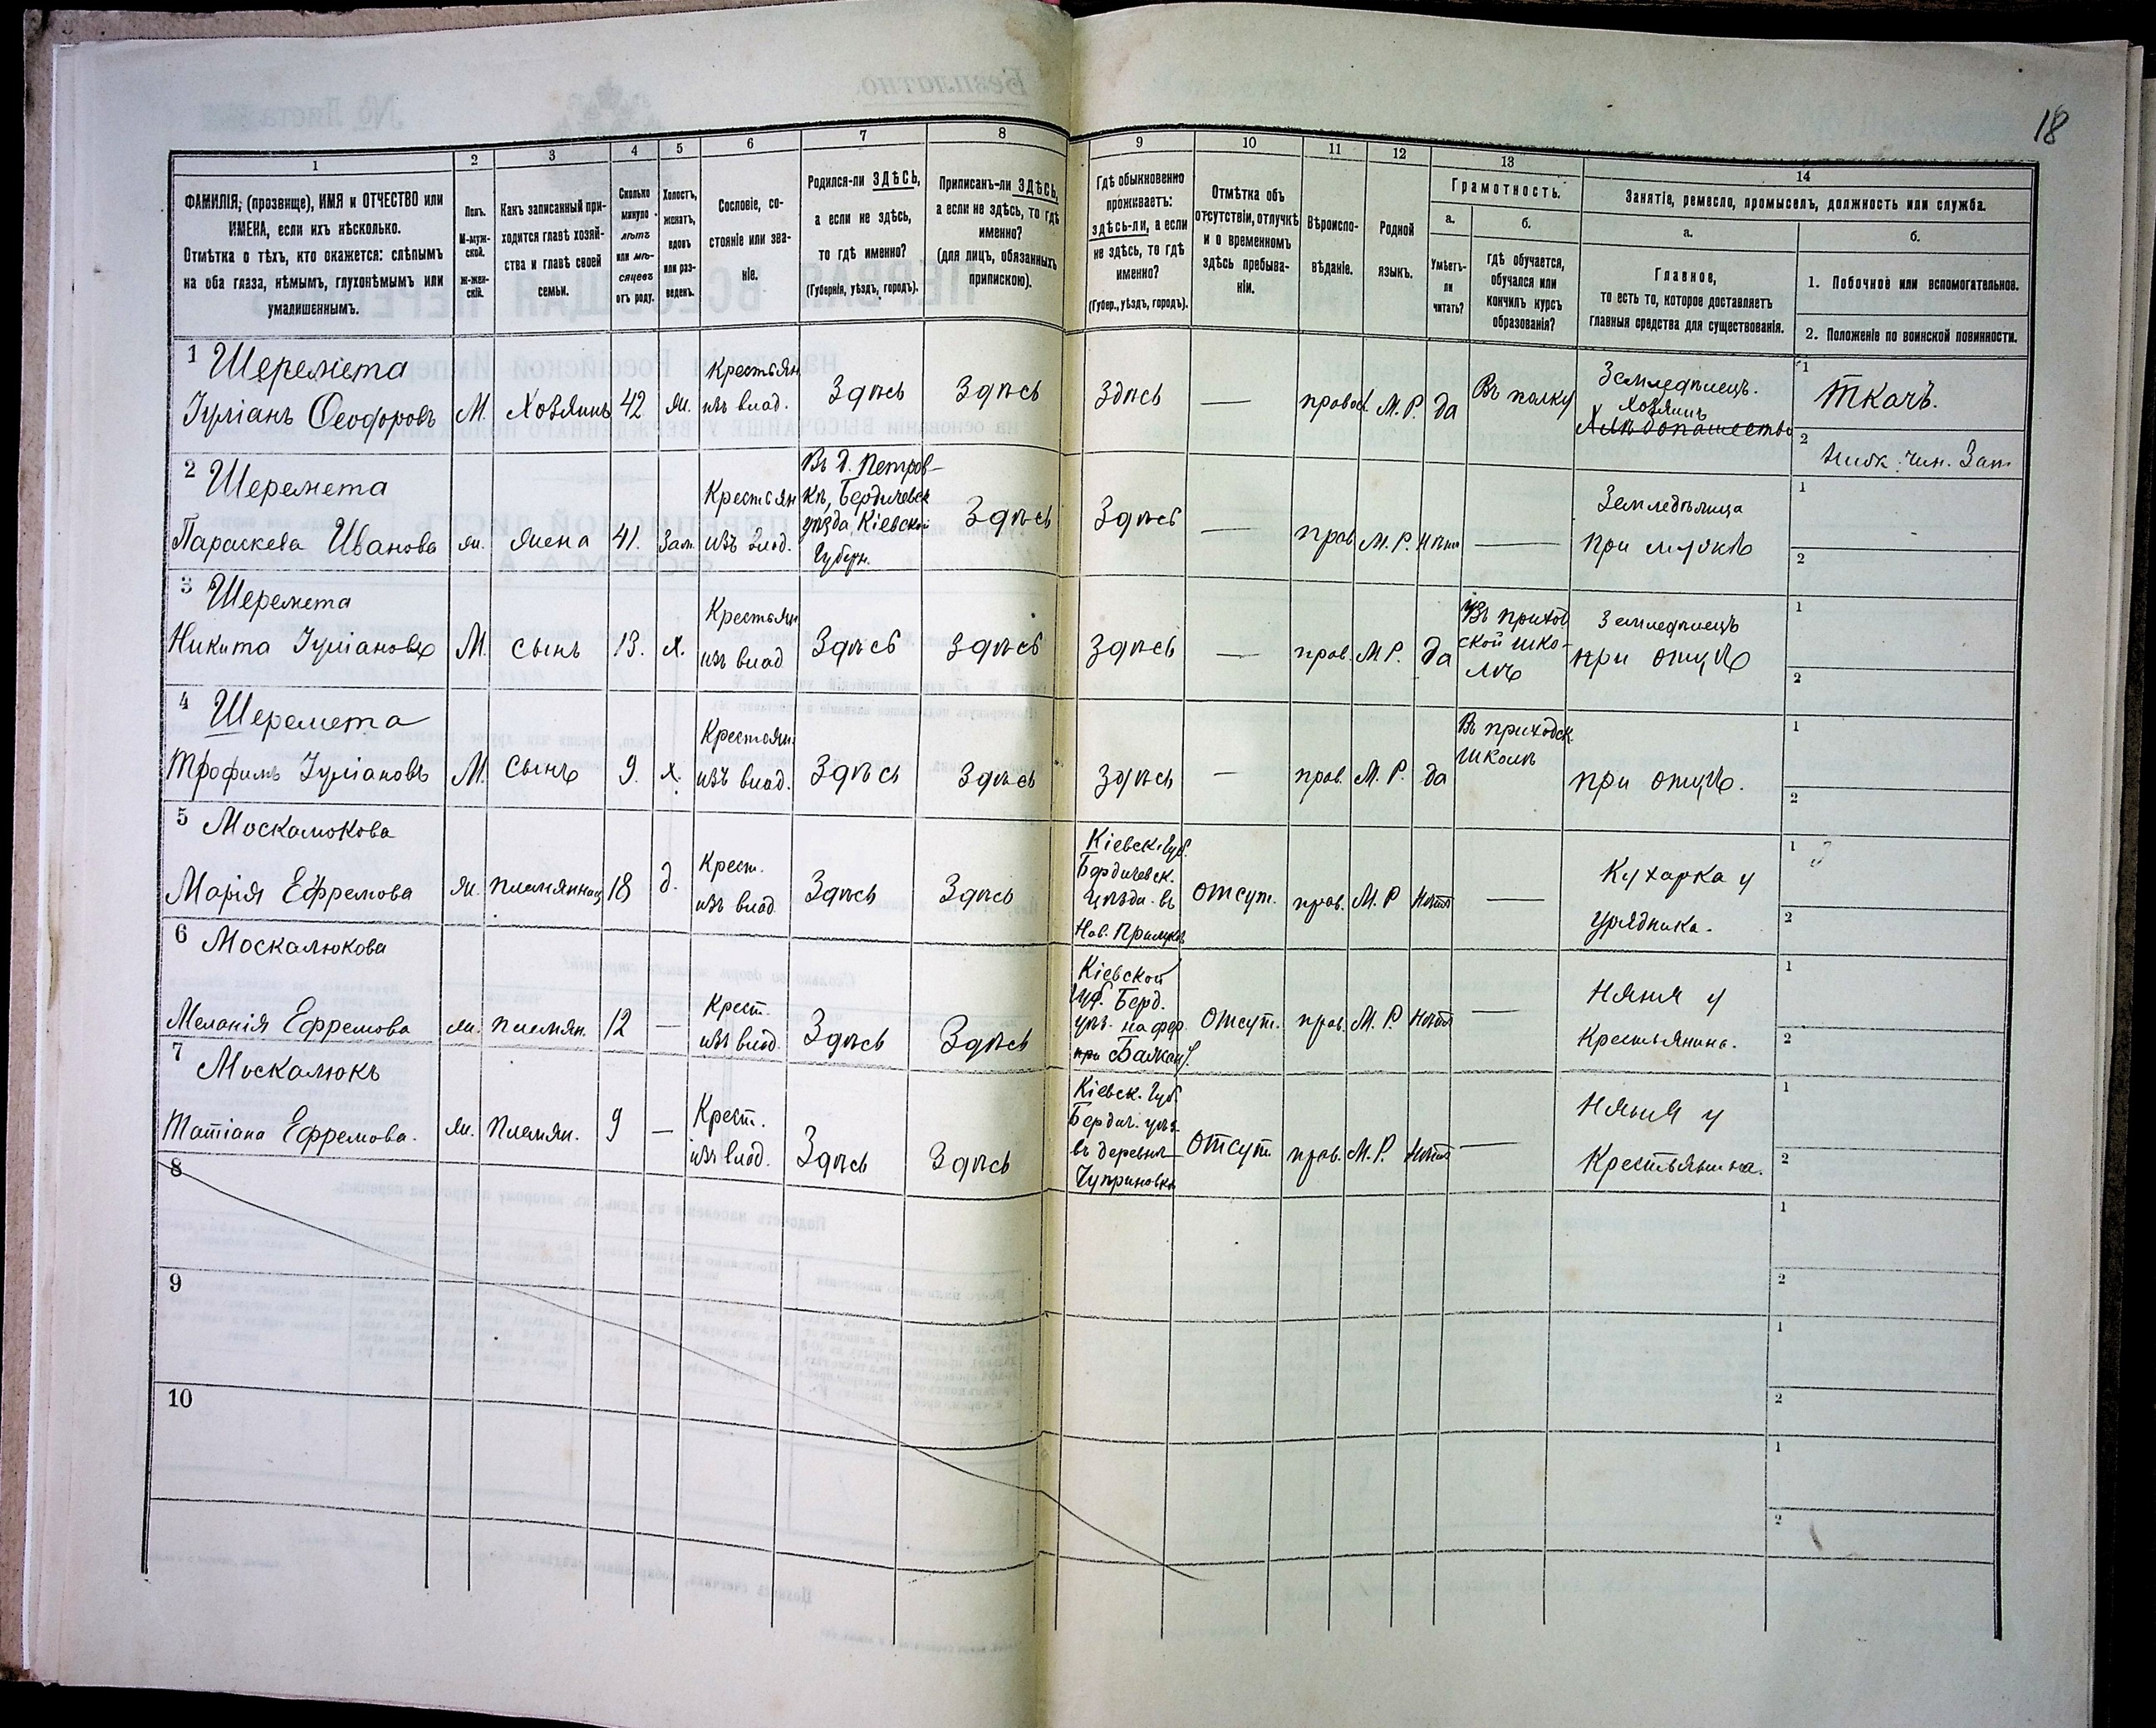 18
1 2 3 4 5 6 7 8 9 10 11 12 13 14
ФАМИЛІЯ, (прозвище), ИМЯ и ОТЧЕСТВО или
ИМЕНА, если ихъ нѣсколько.
Отмѣтка о тѣхъ, кто окажется: слѣпымъ
на оба глаза, нѣмымъ, глухонѣмымъ или
умалишеннымъ.
Полъ.
М-муж-
ской.
ж-жен-
скій.
Какъ записанный при-
ходится главѣ хозяй-
ства и главѣ своей
семьи.
Сколько
минуло
лѣтъ
или мѣ-
сяцевъ
отъ роду.
Холостъ,
женатъ,
вдовъ
или раз-
веденъ.
Сословіе, со-
стояніе или зва-
ніе.
Родился-ли ЗДѢСЬ,
а если не здѣсь,
то гдѣ именно?
(Губернія, уѣздъ, городъ).
Приписанъ-ли ЗДѢСЬ,
а если не здѣсь, то гдѣ
именно?
(для лицъ, обязанныхъ
припискою).
Гдѣ обыкновенно
проживаетъ:
здѣсь-ли, а если
не здѣсь, то гдѣ
именно?
(Губер., уѣздъ, городъ).
Отмѣтка объ
отсутствіи, отлучкѣ
и о временномъ
здѣсь пребыва-
ніи.
Вѣроиспо-
вѣданіе.
Родной
языкъ.
Грамотность.
а.
Умѣетъ-
ли
читать?
б.
гдѣ обучается,
обучался или
кончилъ курсъ
образованія?
Занятіе, ремесло, промыселъ, должность или служба.
а.
Главное,
то есть то, которое доставляетъ
главныя средства для существованія.
б.
1. Побочное или вспомогательное.
2. Положеніе по воинской повинности.
1 Шеремета
Іуліанъ Ѳеодоровъ
М.
Хозяинъ
42
ж.
Крестьян
изъ влад.
Здѣсь
Здѣсь
Здѣсь
—
правос.
М. Р.
да
Въ полку
Земледѣлецъ.
хозяинъ
Хлѣбопашество
1
Ткачъ.
2
Нижн. чин. Зап.
2 Шеремета
Параскева Иванова
ж.
жена
41.
Зам.
Крестьян
изъ влад.
Въ д. Петров-
кѣ, Бердичевск
уѣзда Кіевской
Губерн.
Здѣсь
Здѣсь
—
прав
М. Р.
Нѣтъ
—
Земледѣлица
при мужѣ
1
2
3 Шеремета
Никита Іуліановъ
М.
сынъ
13.
х.
Крестьян
изъ влад
Здѣсь
Здѣсь
Здѣсь
—
прав.
М Р.
да
Въ приход
ской шко-
лѣ
Земледѣлецъ
при отцѣ
1
2
4 Шеремета
Трофимъ Іуліановъ
М.
Сынъ
9.
х.
Крестьян.
изъ влад.
Здѣсь
Здѣсь
Здѣсь
—
прав.
М. Р.
да
Въ приходск.
школѣ
при отцѣ.
1
2
5 Москалюкова
Марія Ефремова
ж.
племянниц
18
д.
Крест.
изъ влад
Здѣсь
Здѣсь
Кіевск. Губ.
Бердичевск.
Уѣзда. въ
Нов. Прилукѣ
отсут.
прав.
М. Р
Нѣтъ
—
Кухарка у
урядника.
1
2
6 Москалюкова
Меланія Ефремова
ж.
племян.
12
—
Крест.
изъ влад.
Здѣсь
Здѣсь
Кіевской
Губ. Берд.
уѣз. на фер.
при
Отсут.
прав.
М. Р.
Нѣтъ
—
Няня у
Крестьянина.
1
2
7 Москалюкъ
Татіана Ефремова.
ж.
Племян.
9
—
Крест.
изъ влад.
Здѣсь
Здѣсь
Кіевск. Губ
Бердич. уѣз.
въ деревнѣ
Чуприновкѣ
Отсут.
прав.
М. Р.
Нѣтъ
—
Няня у
Крестьянина.
1
2
8
1
2
9
1
2
10
1
2